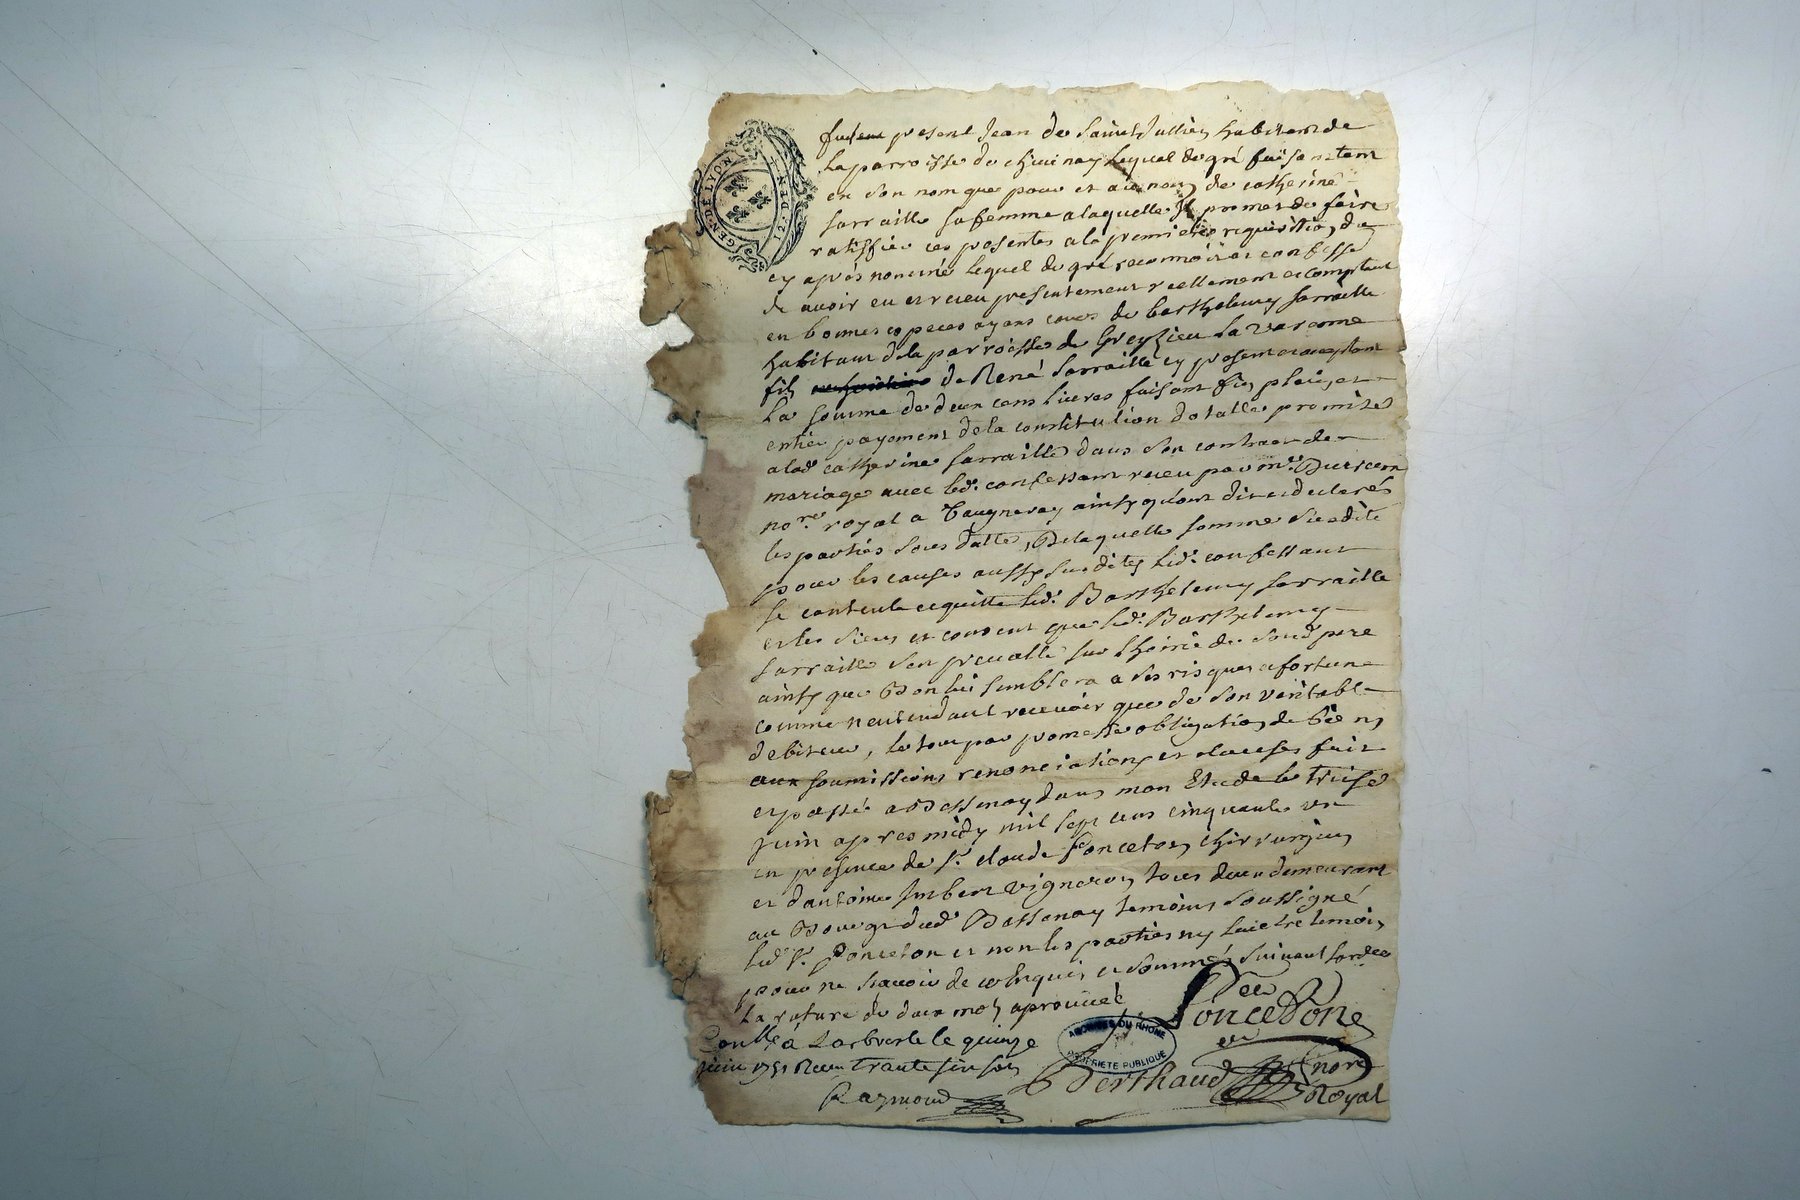 GEN. DE LYON 12. DEN.
fut present Jean de Saint Jullien habitant de
la parroisse de chuinay lequel de gré faisant tant
en son nom que pour et au nom de catherine
sarraille sa femme a laquelle Il promet de faire
ratiffier ces presentes a la premiere requisition du
cy après nommé lequel de gré reconnoist et confesse
de avoir eu et receu presentement reellement et comptant
en bonnes especes ayant cours de barthelemy sarraille
habitant de la parroisse de Greyzieu la varenne
fils de René Sarraille cy present et acceptant
La somme de deux cens livres faisant fin plein et
entier payement de la constitution dotalle promise
a lad. catherine sarraille dans son contract de
mariage avec led. confessant receu par me.
nore. royal a Vaugneray ainsy qu'ont dit et declarés
les parties sous datte, De laquelle somme susditte
pour les causes aussy susdites led. confessant
se contente et quitte led. Barthelemy sarraille
et les siens et consent que led. Barthelemy
sarraille s'en prevalle sur l'hoirie de son d. pere
ainsy que Bon lui semblera a ses risques et fortune
comme n'entendant recevoir que de son veritable
debiteur, le tout par promesse obligation de biens
aux soumissions renonciations et clauses fait
et passé a Bessenay dans mon Etude le treize
juin apres midy mil sept cens cinquante un
en presence de Sr. claude Ponceton chirurgien
et d'antoine Imbert vigneron tous deux demeurant
au Bourg dud. Bessenay temoins soussigné
led. Sr. Ponceton et non les parties ny l'autre temoin
pour ne sçavoir de ce Enquis et sommés suivant l'ordce
la rature de deux mots aprouvée
Ponceton
Conllé a Larbresle le quinze
juin 1751 Receu trante six sols
ARCHIVES DU RHONE PROPRIETE PUBLIQUE
Berthaud nore
Royal
Raymond